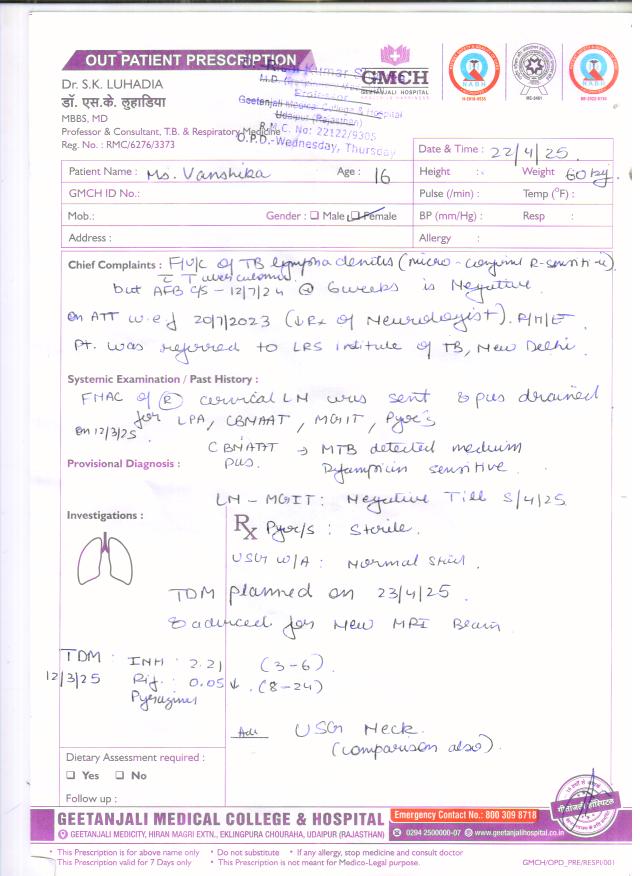 OUT PATIENT PRESCRIPTION
GMCH
GEETANJALI HOSPITAL
Dr. S.K. LUHADIA
डॉ. एस.के. लुहाडिया
MBBS, MD
Professor & Consultant, T.B. & Respiratory Medicine
Reg. No. : RMC/6276/3373
Geetanjali Medical College & Hospital
Udaipur (Rajasthan)
R.M.C. No: 22122/9305
O.P.D.-Wednesday, Thursday
Date & Time : 22/4/25.
Patient Name : Ms. Vanshika Age : 16
Height : Weight 60 kg.
GMCH ID No.:
Pulse (/min) : Temp (°F) :
Mob.: Gender : ☐ Male ☑ Female
BP (mm/Hg) : Resp :
Address :
Allergy :
Chief Complaints : F/U/C of TB lymphadenitis (micro-confirmed R-sensitive)
c̄ Tuberculoma.
but AFB C/S - 12/7/24 @ 6 weeks is Negative.
On ATT w.e.f 20/7/2023 (↓Rx of Neurologist). R/H/E
Pt. was referred to LRS institute of TB, New Delhi.
Systemic Examination / Past History :
FNAC of (R) cervical LN was sent & pus drained
on 12/3/25. for LPA, CBNAAT, MGIT, Pyoc/s
CBNAAT → MTB detected medium
Provisional Diagnosis : pus. Rifampicin sensitive.
LN - MGIT : Negative Till 5/4/25
Investigations :
Rx Pyoc/s : Sterile.
USG W/A : Normal Study.
TDM planned on 23/4/25.
& advised for New MRI Brain
TDM : INH : 2.21 (3-6).
12/3/25 Rif : 0.05 ↓ . (8-24)
Adv USG Neck.
(comparison also).
Dietary Assessment required :
☐ Yes ☐ No
Follow up :
GEETANJALI MEDICAL COLLEGE & HOSPITAL
Emergency Contact No.: 800 309 8718
GEETANJALI MEDICITY, HIRAN MAGRI EXTN., EKLINGPURA CHOURAHA, UDAIPUR (RAJASTHAN)
0294 2500000-07 www.geetanjalihospital.co.in
• This Prescription is for above name only • Do not substitute • If any allergy, stop medicine and consult doctor
• This Prescription valid for 7 Days only • This Prescription is not meant for Medico-Legal purpose.
GMCH/OPD_PRE/RESPI/001